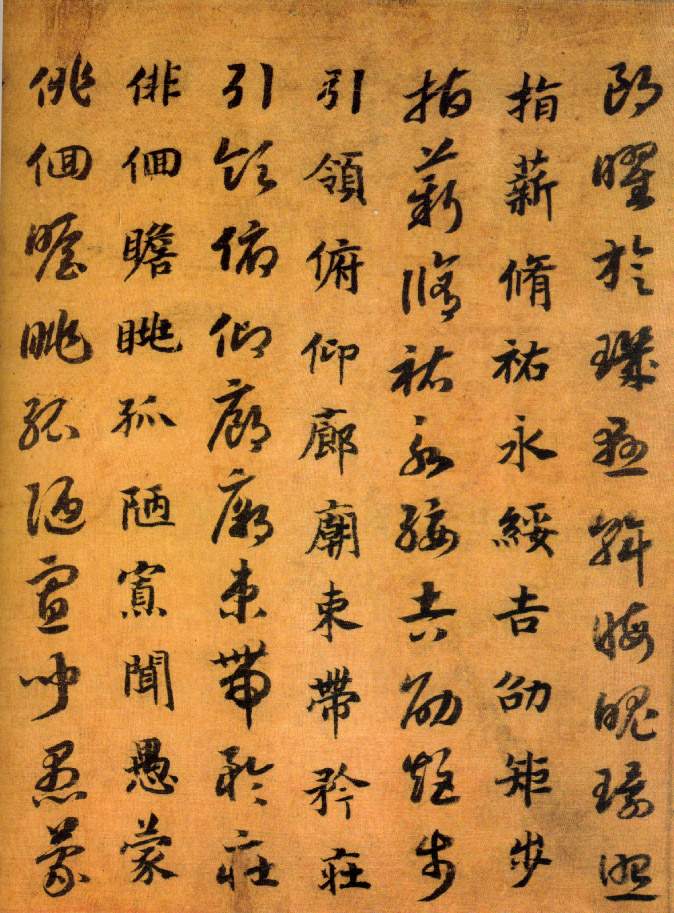 朗曜旋璣懸斡晦魄環照
指薪脩祐永綏吉劭矩步
指薪脩祐永綏吉劭矩步
引領俯仰廊廟束帶矜莊
引領俯仰廊廟束帶矜莊
俳佪瞻眺孤陋寡聞愚蒙
俳佪瞻眺孤陋寡聞愚蒙